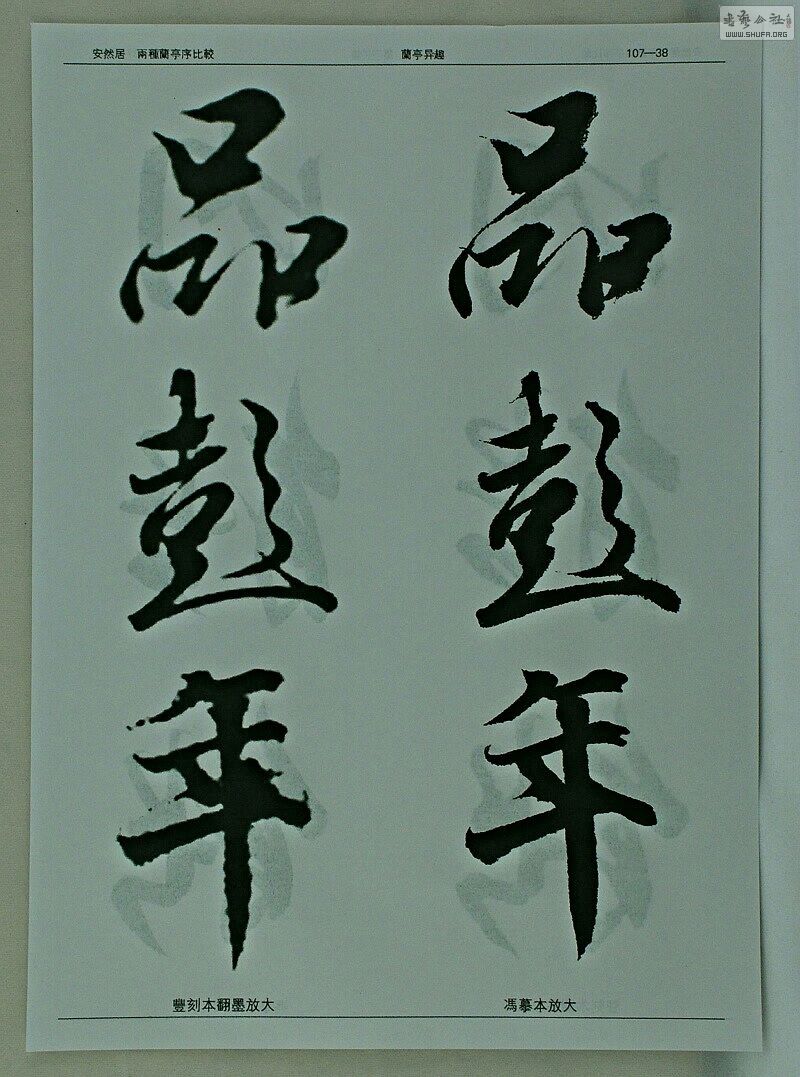 书艺公社
WWW.SHUFA.ORG
安然居 兩種蘭亭序比較 蘭亭异趣 107—38
品 品
彭 彭
年 年
豐刻本翻墨放大 馮摹本放大